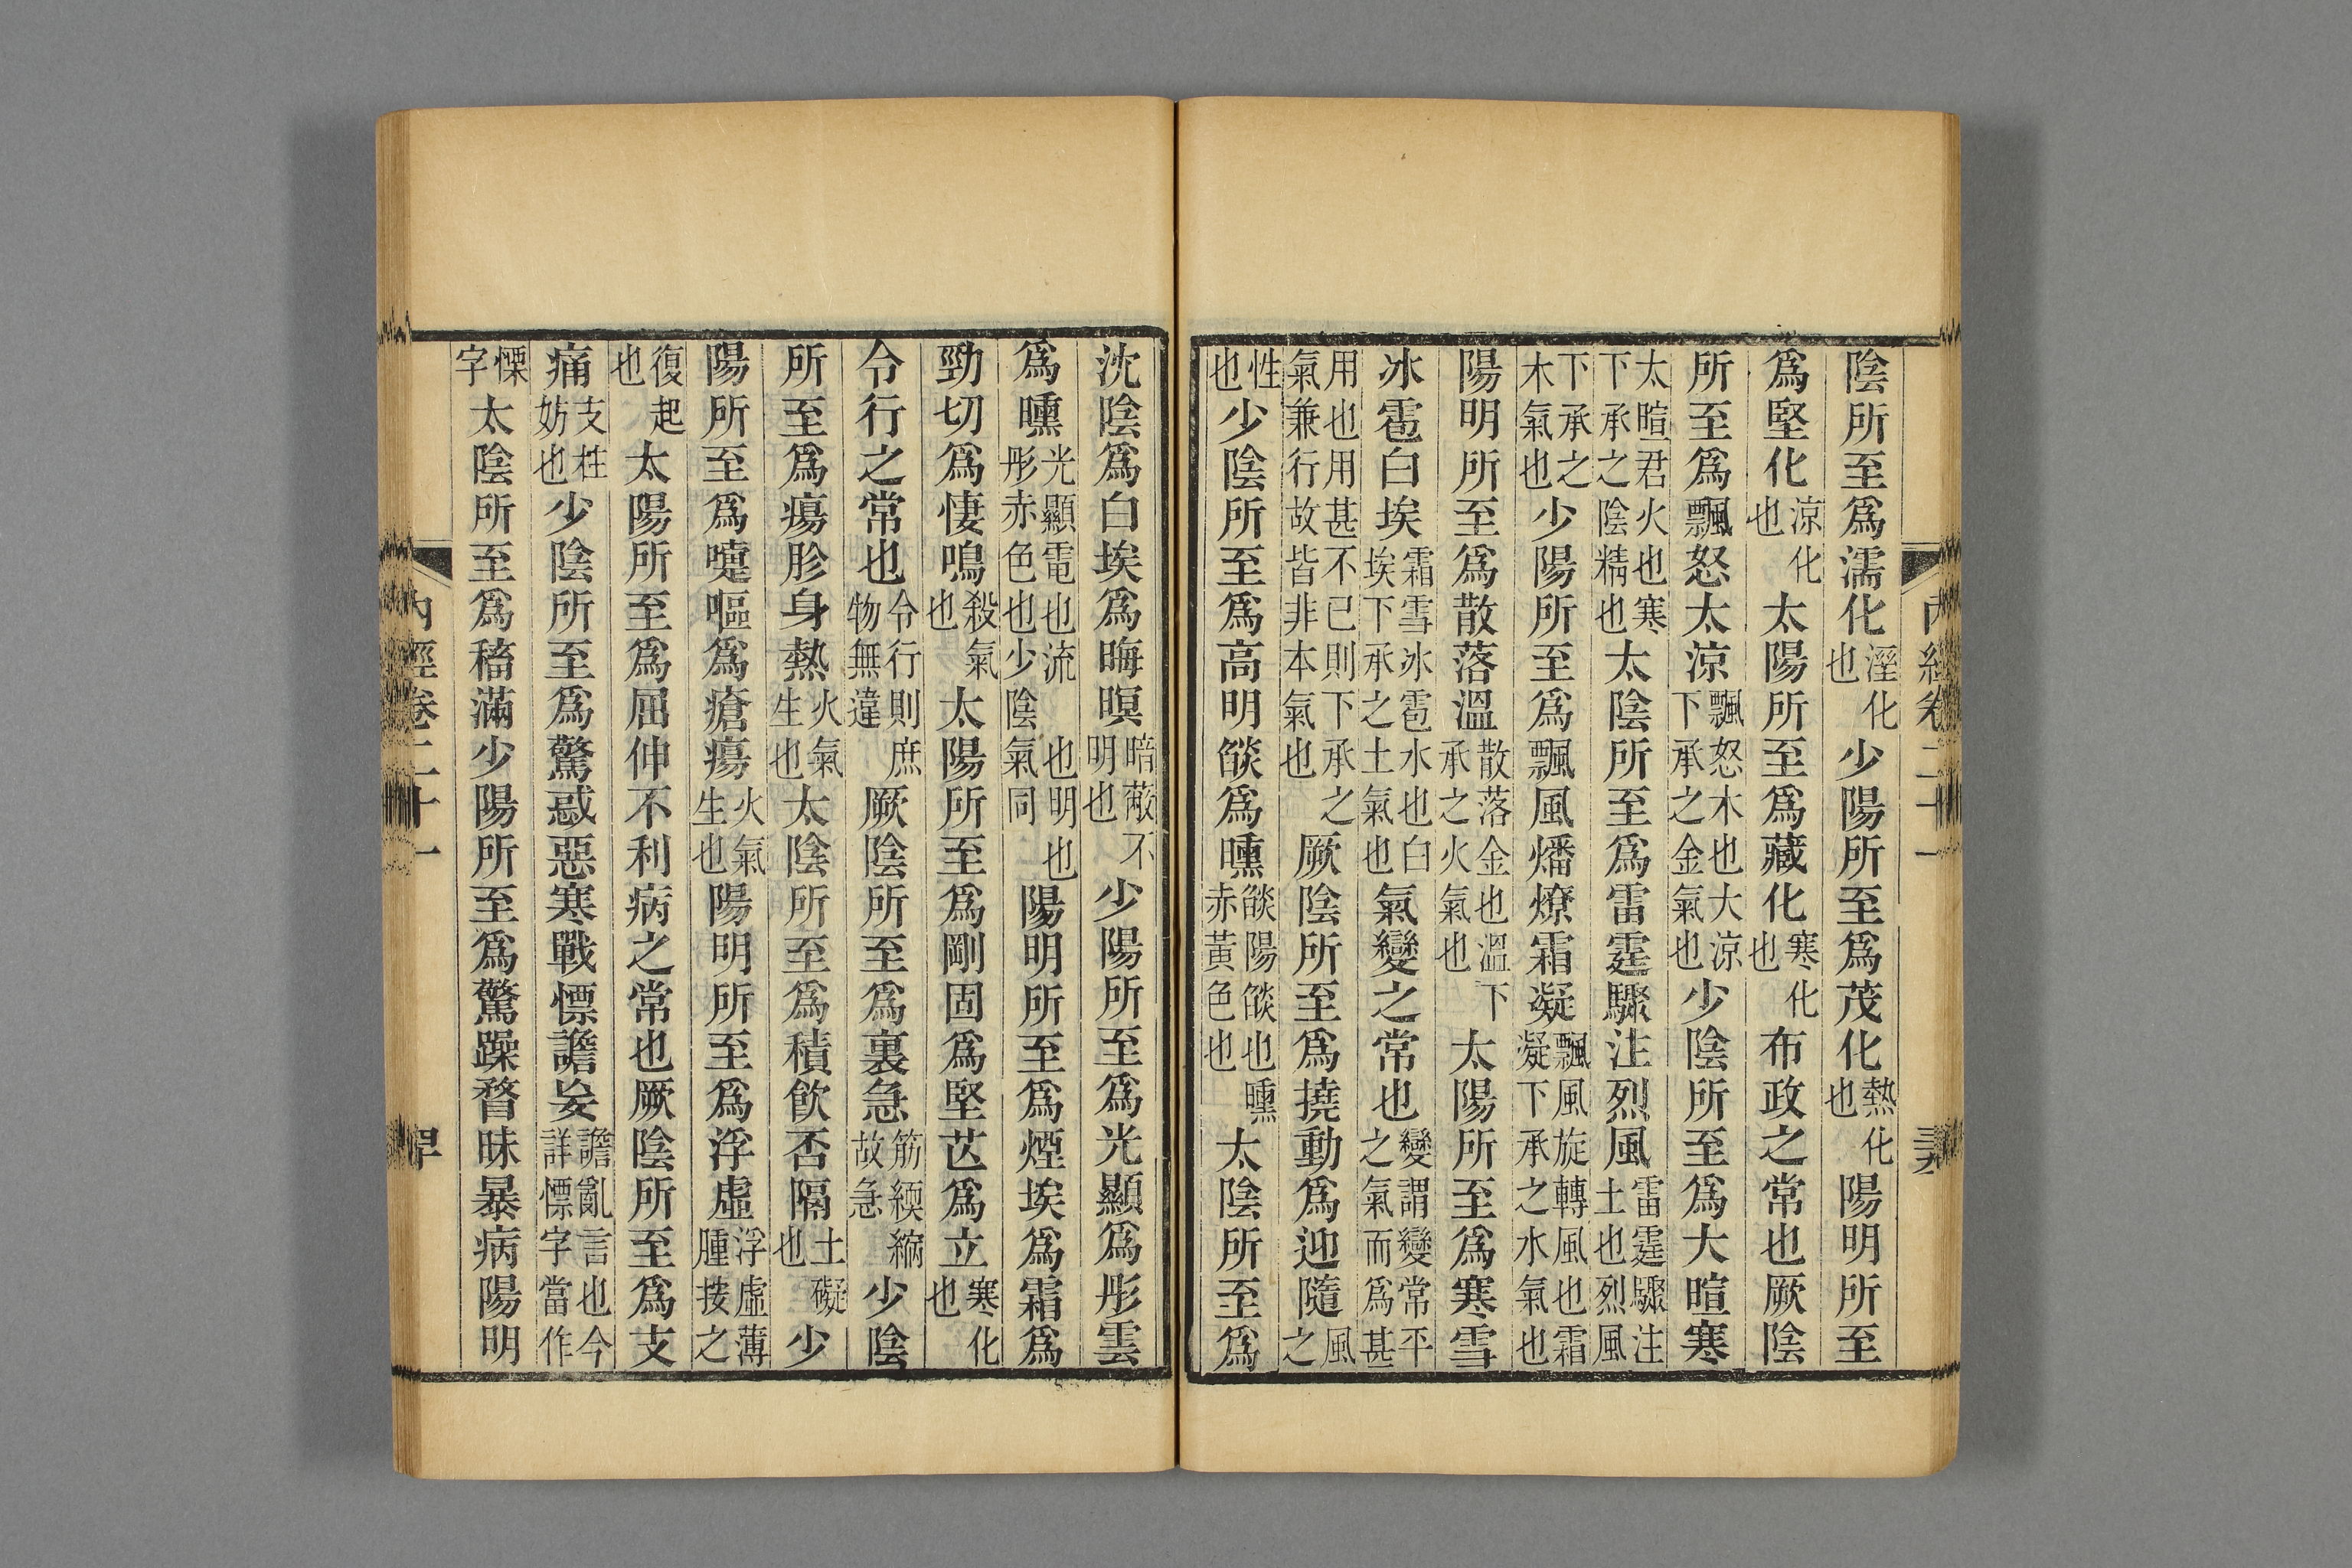 内經卷二十一
陰所至爲濡化溼化也少陽所至爲茂化熱化也陽明所至
爲堅化涼化也太陽所至爲藏化寒化也布政之常也厥陰
所至爲飄怒太涼飄怒木也大涼下承之金氣也少陰所至爲大暄寒
太暄君火也寒下承之陰精也太陰所至爲雷霆驟注烈風雷霆驟注土也烈風
下承之木氣也少陽所至爲飄風燔燎霜凝飄風旋轉風也霜凝下承之水氣也
陽明所至爲散落溫散落金也溫下承之火氣也太陽所至爲寒雪
冰雹白埃霜雪冰雹水也白埃下承之土氣也氣變之常也變謂變常平之氣而爲甚
用也用甚不已則下承之氣兼行故皆非本氣也厥陰所至爲撓動爲迎隨風之
性也少陰所至爲高明燄爲曛燄陽燄也曛赤黃色也太陰所至爲
沈陰爲白埃爲晦暝暗蔽不明也少陽所至爲光顯爲彤雲
爲曛光顯電也流也明也彤赤色也少陰氣同陽明所至爲煙埃爲霜爲
勁切爲悽鳴殺氣也太陽所至爲剛固爲堅芒爲立寒化也
令行之常也令行則庶物無違厥陰所至爲裏急筋緛縮故急少陰
所至爲瘍胗身熱火氣生也太陰所至爲積飲否隔土礙也少
陽所至爲嚏嘔爲瘡瘍火氣生也陽明所至爲浮虛浮虛薄腫按之
復起也太陽所至爲屈伸不利病之常也厥陰所至爲支
痛支柱妨也少陰所至爲驚惑惡寒戰慄譫妄譫亂言也今詳慄字當作
慄字太陰所至爲稸滿少陽所至爲驚躁瞀昧暴病陽明
内經卷二十一